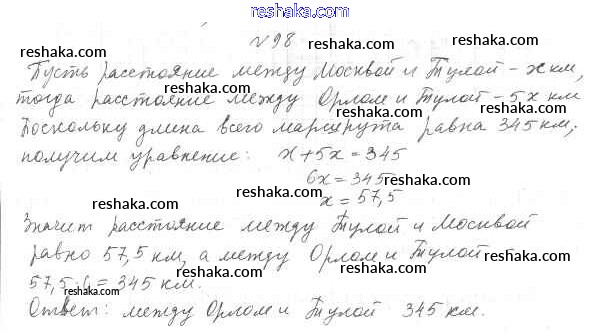 reshaka.com
№98
reshaka.com
Пусть расстояние между Москвой и Тулой - x км,
reshaka.com reshaka.com reshaka.com
тогда расстояние между Орлом и Тулой - 5x км
reshaka.com reshaka.com
Поскольку длина всего маршрута равна 345 км,
reshaka.com
получим уравнение: x + 5x = 345
reshaka.com
6x = 345
reshaka.com reshaka.com
x = 57,5
reshaka.com
Значит расстояние между Тулой и Москвой
reshaka.com reshaka.com
равно 57,5 км, а между Орлом и Тулой
reshaka.com reshaka.com
57,5·6 = 345 км.
reshaka.com reshaka.com
Ответ: между Орлом и Тулой 345 км.
reshaka.com